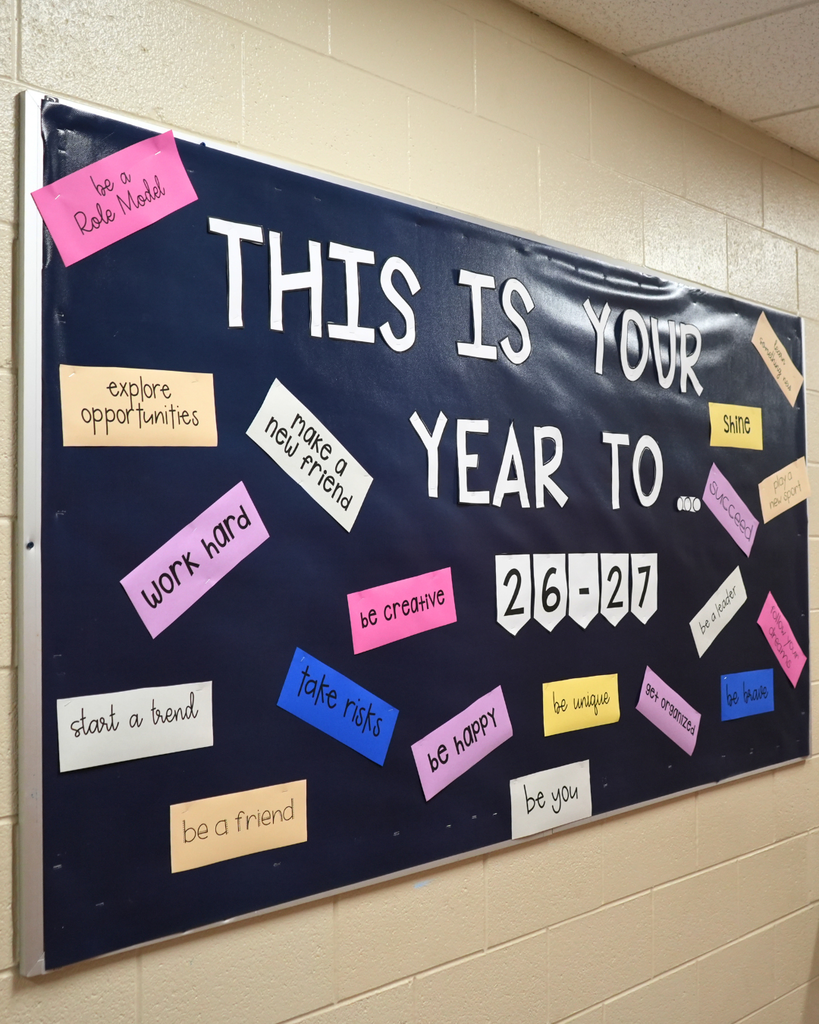 be a
Role Model
THIS IS YOUR
YEAR TO...
26-27
explore
opportunities
make a
new friend
work hard
be creative
start a trend
take risks
be happy
be a friend
be unique
be you
get organized
be brave
be a leader
follow your
dreams
succeed
play a
new sport
Shine
learn
something new